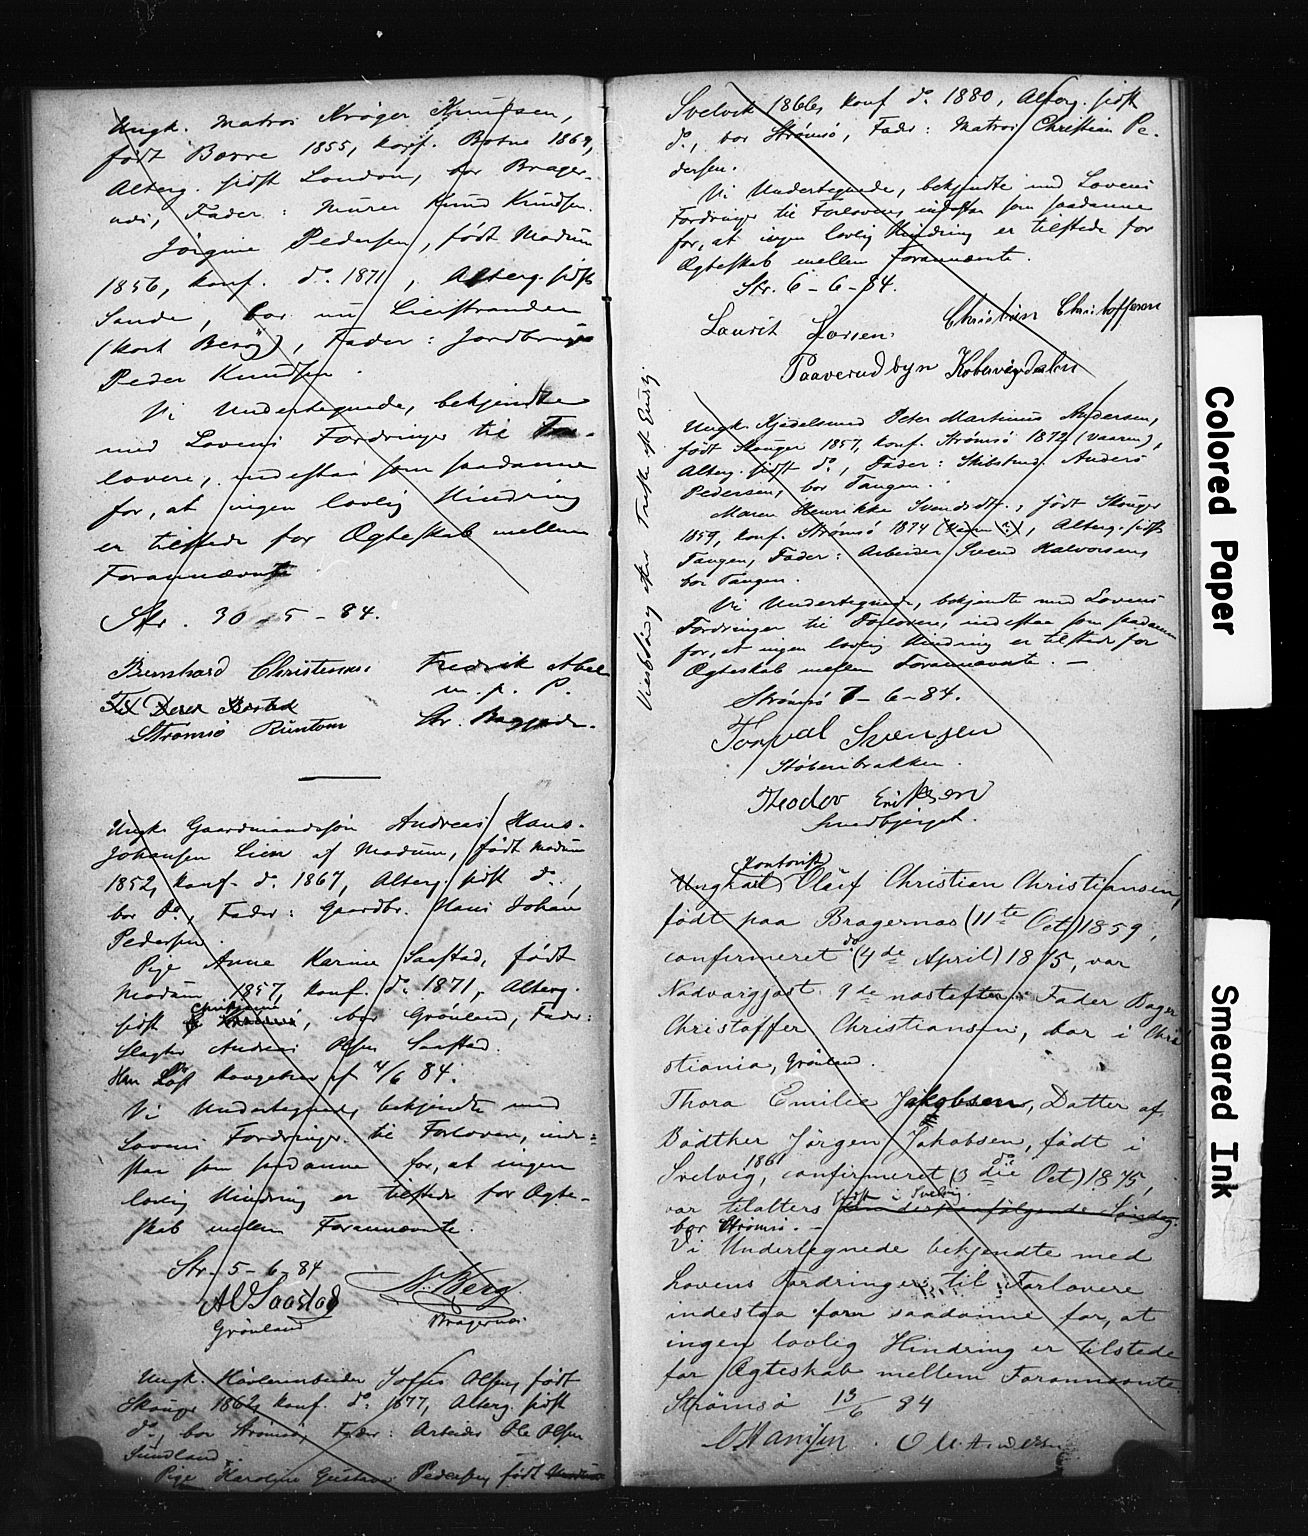 Ungk. Matros Kröger Knudsen,
født Borre 1855, konf. Botne 1869,
Alterg. sidst London, bor Brager-
næs, Fader: Murer Knud Knudsen.
Jörgine Pedersen, født Modum
1856, konf. do. 1871, Alterg. sidst
Sande, bor nu Lierstranden
(kort Besøg), Fader: Jordbruger
Peder Knudsen.
Vi Undertegnede, bekjendte
med Lovens Fordringer til For-
lovere, indestaa som saadanne
for, at ingen lovlig Hindring
er tilstede for Ægteskab mellem
Forannævnte
Str. 30-5-84.
Bernhard Christensen
Fredrik Abel
m. p. P.
Strømsö
Str.
Ungk. Gaardmandssøn Andreas Hans-
Johansen Lien af Modum, født Modum
1852, konf. do. 1867, Alterg. sidst do.,
bor do., Fader: Gaardbr. Hans Johan
Pedersen.
Pige Anne Karine Saastad, født
Modum 1857, konf. do. 1871, Alterg.
sidst Christiania, bor Grönland, Fader:
Slagter Andreas Olsen Saastad.
Han Løst Kongebrev af 4/6 84.
Vi Undertegnede, bekjendte med
Lovens Fordringer til Forlovere, inde-
staa som saadanne for, at ingen
lovlig Hindring er tilstede for Ægte-
skab mellem Forannævnte.
Str. 5-6-84
A O Saastad
Grönland
N. Berg.
Bragernæs
Ungk. Høvleriarbeider Olsen, født
Skouger 1862, konf. do. 1877, Alterg. sidst
do., bor Strømsø, Fader: Arbeider Ole Olsen
Sundland.
Pige Karoline Gustava Pedersen, født
Svelvik 1866, konf do. 1880, Alterg. sidst
do., bor Strømsö, Fader: Matros Christian Pe-
dersen.
Vi Undertegnede, bekjendte med Lovens
Fordringer til Forlovere, indestaa som saadanne
for, at ingen lovlig Hindring er tilstede for
Ægteskab mellem Forannævnte.
Str. 6-6-84.
Laurit Larsen
Christian Christoffersen
Paaverudbyn Kobbervigdalen
Ungk. Kjedelsmed Peter Martinus Andersen,
født Skouger 1857, konf. Strømsö 1872 (Vaaren),
Alterg. sidst do., Fader: Skibstmd. Anders
Pedersen, bor Tangen.
Maren Henrikke Svendsdtr., født Skouger
1859, konf. Strømsö 1874, Alterg. sidst
Tangen, Fader: Arbeider Svend Halvorsen,
bor Tangen.
Vi Undertegnede, bekjendte med Lovens
Fordringer til Forlovere, indestaa som saadanne
for, at ingen lovlig Hindring er tilstede for
Ægteskab mellem Forannævnte. –
Strømsö 7-6-84.
Torval Svensen
Støberibakken.
Theodor Eriksen
Smedbjerget.
Kontorist
Ungkarl Oluf Christian Christiansen,
født paa Bragernæs (11te Oct) 1859,
confirmeret do (4de April) 1875, var
Nadvargjæst 9de næstefter. Fader Bager
Christoffer Christiansen, bor i Chri-
stiania, Grönland.
Thora Emilie Jakobsen, Datter af
Bödtker Jörgen Jakobsen, født i
Svelvig, 186 confirmeret do (3die Oct) 1875,
var tilalters sidst i Svelvig den derpaafølgende Söndag.
bor Strømsö. –
Vi Undertegnede bekjendte med
Lovens Fordringer til Forlovere
indestaa som saadanne for, at
ingen lovlig Hindring er tilstede
for Ægteskab mellem Forannævnte.
Strømsö 13/6 84
O Hansen. O M Andersen
Colored Paper
Smeared Ink